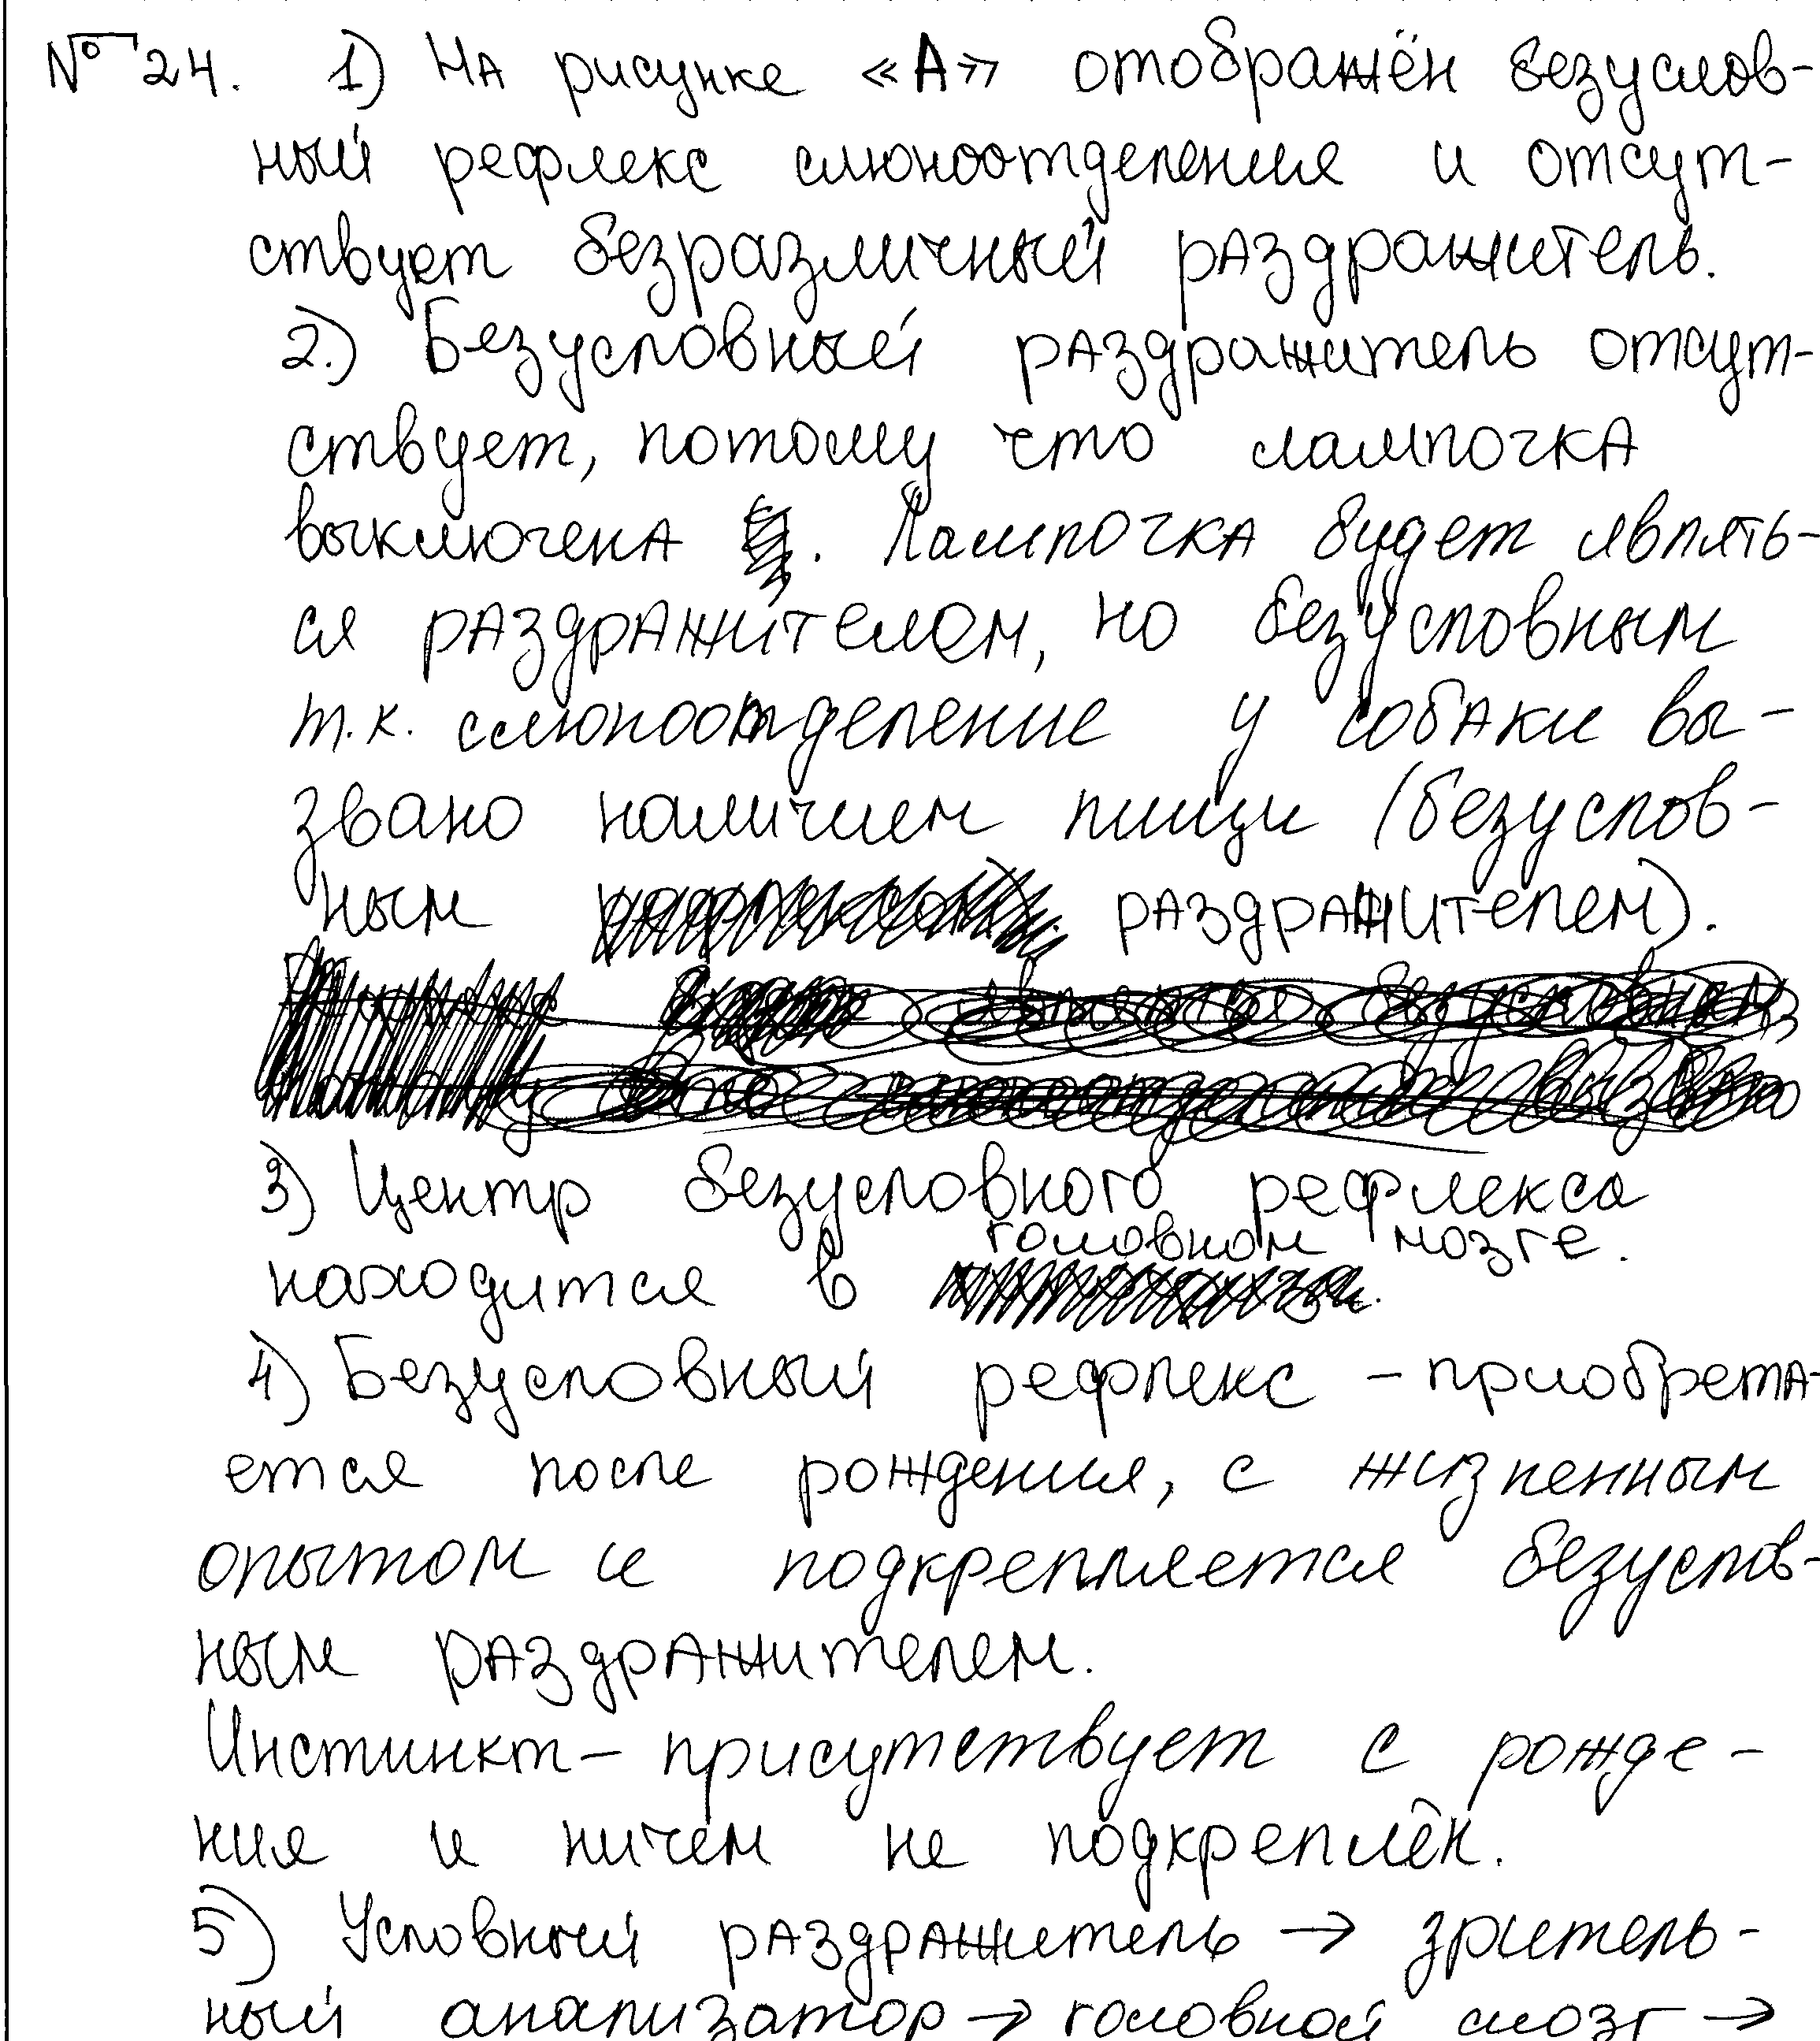 № 24. 1) На рисунке «А» отображён безуслов-
ный рефлекс слюноотделения и отсут-
ствует безразличный раздражитель.
2.) Безусловный раздражитель отсут-
ствует, потому что лампочка
выключена. Лампочка будет являть-
ся раздражителем, но безусловным
т.к. слюноотделение у собаки вы-
звано наличием пищи (безуслов-
ным раздражителем).
3) Центр безусловного рефлекса
находится в головном мозге.
4) Безусловный рефлекс - приобрета-
ется после рождения, с жизненным
опытом и подкрепляется безуслов-
ным раздражителем.
Инстинкт - присутствует с рожде-
ния и ничем не подкреплён.
5) Условный раздражитель → зритель-
ный анализатор → головной мозг →